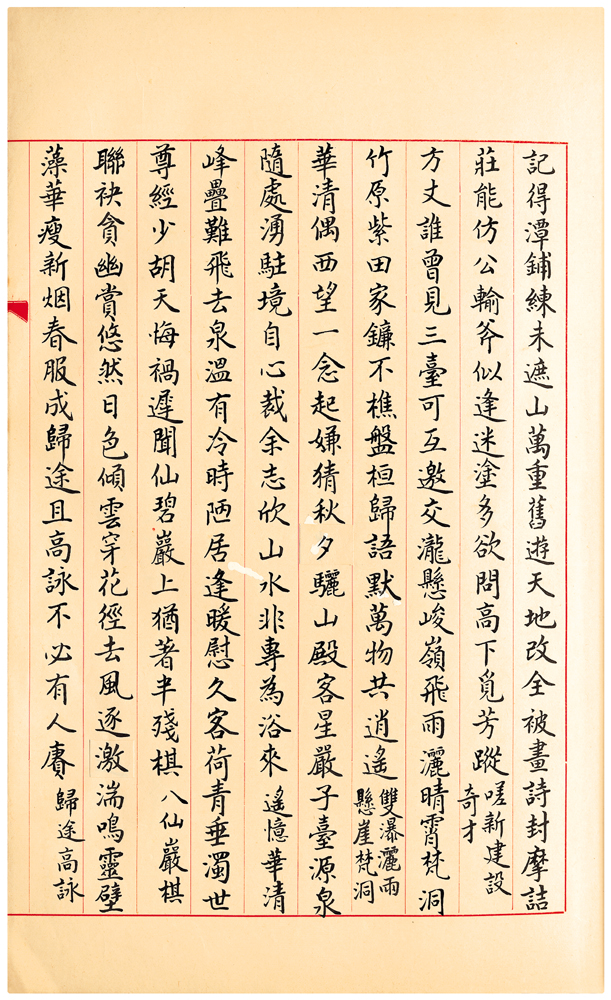 記得潭鋪練未遮山萬重舊遊天地改全被畫詩封摩詰
莊能仿公輸斧似逢迷塗多欲問高下覓芳蹤
嗟新建設
奇才
方丈誰曾見三臺可互邀交瀧懸峻嶺飛雨灑晴霄梵洞
竹原紫田家鐮不樵盤桓歸語默萬物共逍遙
雙瀑灑雨
懸崖梵洞
華清偶西望一念起嫌猜秋夕驪山殿客星嚴子臺源泉
隨處湧駐境自心裁余志欣山水非專為浴來
遙憶華清
峰疊難飛去泉溫有冷時陋居逢暖慰久客荷青垂濁世
尊經少胡天悔禍遲聞仙碧巖上猶著半殘棋
八仙巖棋
聯袂貪幽賞悠然日色傾雲穿花徑去風逐激湍鳴靈壁
藻華瘦新烟春服成歸途且高詠不必有人賡
歸途高詠